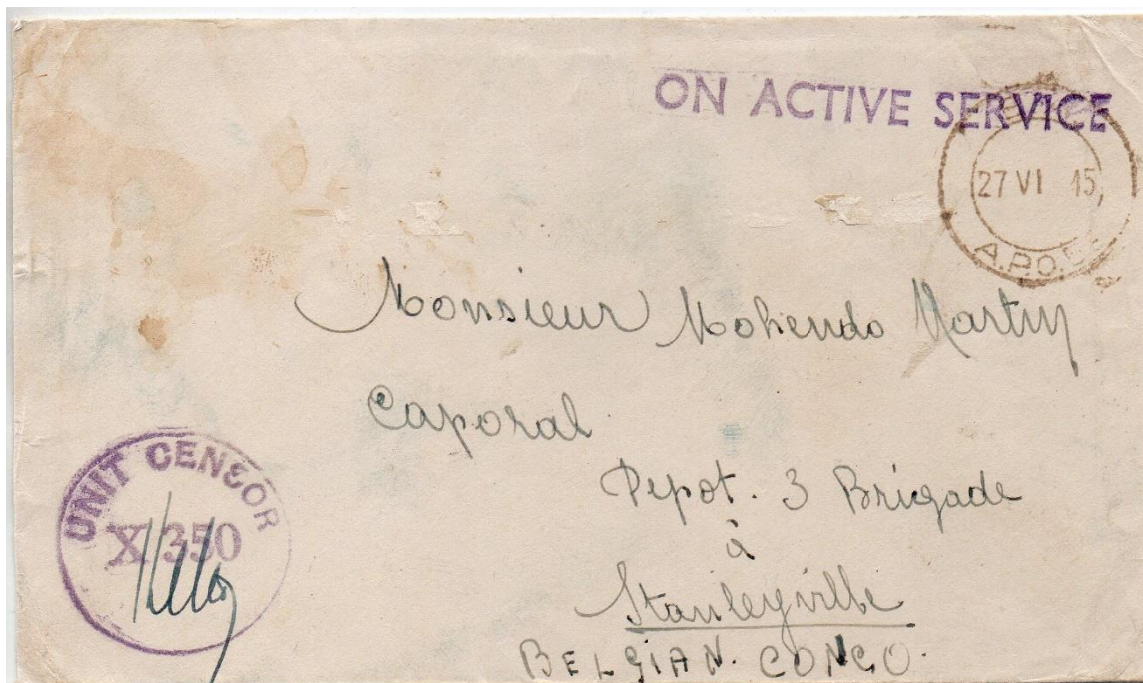 ON ACTIVE SERVICE
27 VI 45
A.P.O.
Monsieur Mohendo Martin
Caporal
Depot. 3 Brigade
à
Stanleyville
BELGIAN. CONGO.
UNIT CENSOR
X 350